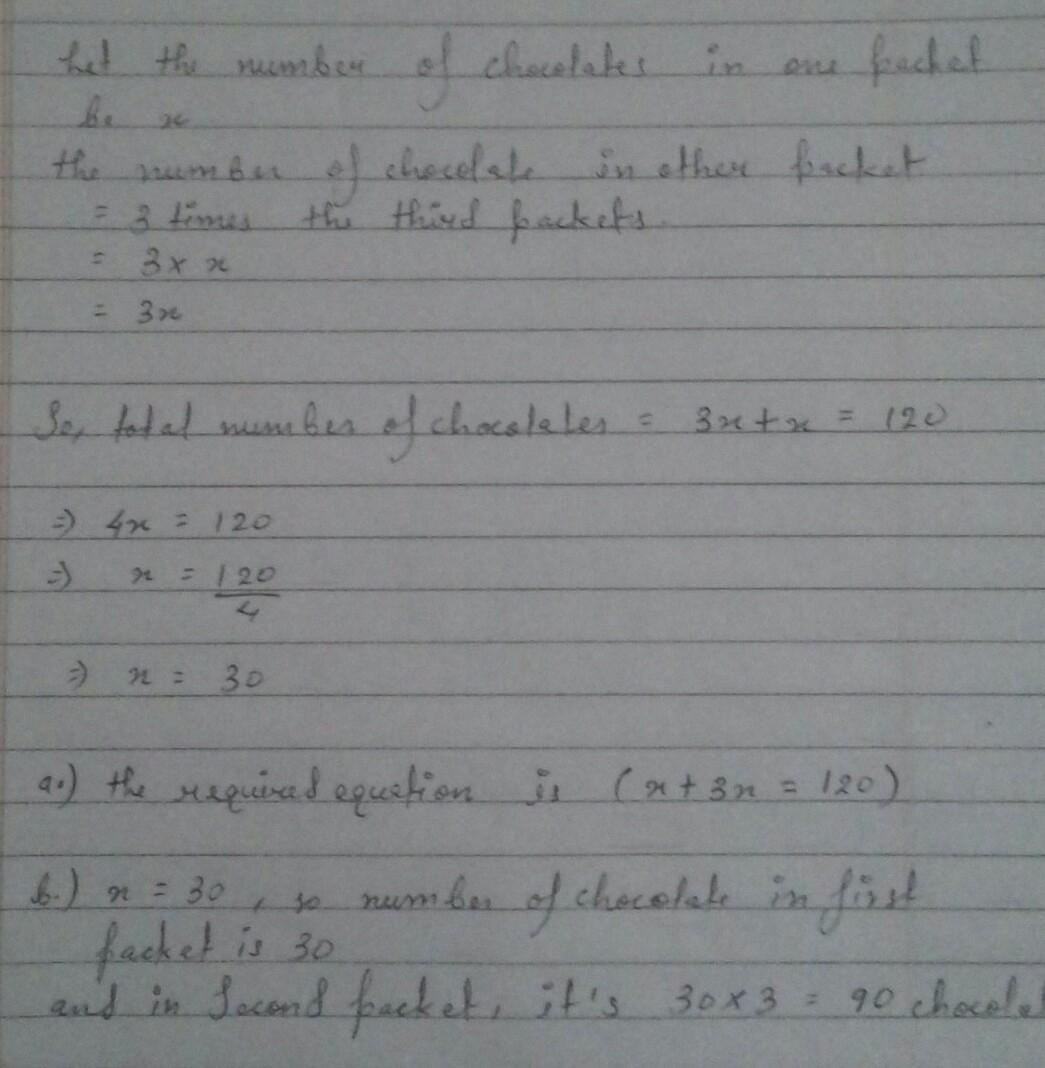 Let the number of chocolates in one packet
be x
the number of chocolate in other packet
= 3 times the third packets.
= 3 × x
= 3x
So, total number of chocolates = 3x + x = 120
⇒ 4x = 120
⇒ x = 120
4
⇒ x = 30
a.) the required equation is (x + 3x = 120)
b.) x = 30, so number of chocolate in first
packet is 30
and in Second packet, it's 30 × 3 = 90 chocola